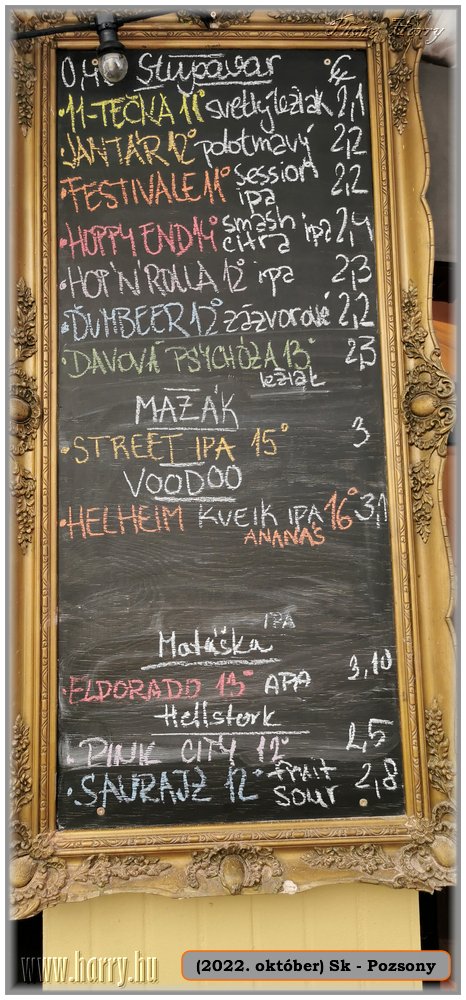 Photo: Horry
0,4l Stupavar €
·11-TEČKA 11° svetlý ležiak 2,1
·JANTÁR 12° polotmavý 2,2
·FESTIVALE 11° session ipa 2,2
·HOPPY END 14° smash citra ipa 2,4
·HOP'N ROLLA 12° ipa 2,3
·ĎUMBEER 12° zázvorové 2,2
·DAVOVÁ PSYCHÓZA 13° ležiak 2,3
MAZÁK
·STREET IPA 15° 3
VOODOO
·HELHEIM KVEIK IPA 16° 3,1
ANANÁS
IPA
Mataška
·ELDORADO 13° APA 3,10
Hellstork
PINK CITY 12° 2,5
·SAURAJZ 12° fruit sour 2,8
www.horry.hu
(2022. október) Sk - Pozsony